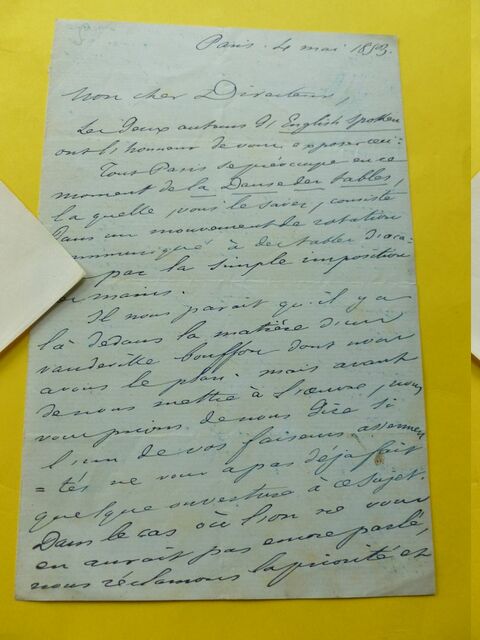 Paris. 4 mai 1853.
Mon cher Directeur,
Les deux auteurs d'English spoken
ont l'honneur de vous exposer ceci:
Tout Paris se préoccupe en ce
moment de la Danse des tables,
laquelle, vous le savez, consiste
dans un mouvement de rotation
communiqué à des tables d'aca-
par la simple imposition
mains.
Il nous parait qu'il y a
là dedans la matière d'un
vaudeville bouffon dont nous
avons le plan. mais avant
de nous mettre à l'œuvre, nous
vous prions de nous dire si
l'un de vos faiseurs assermen
=tés ne vous a pas déja fait
quelque ouverture à ce sujet.
Dans le cas où l'on ne vous
en aurait pas encore parlé,
nous réclamons la priorité et